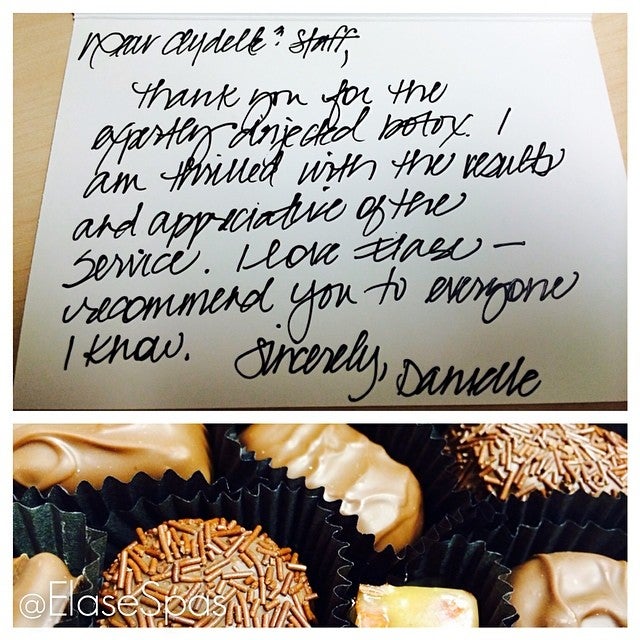 Dear Clydelle & Staff,
Thank you for the
expertly injected botox. I
am thrilled with the results
and appreciative of the
service. I love Elase –
recommend you to everyone
I know. Sincerely, Danielle
@ElaseSpas